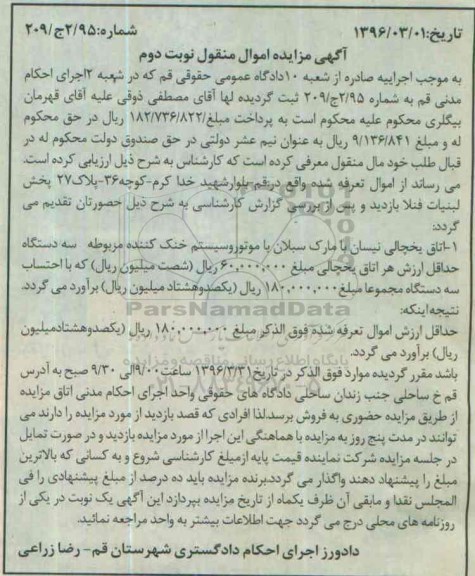 تاریخ:۱۳۹۶/۰۳/۰۱ شماره:۲/۹۵ج/۲۰۹
آگهی مزایده اموال منقول نوبت دوم
به موجب اجراییه صادره از شعبه ۱۰دادگاه عمومی حقوقی قم که در شعبه ۲اجرای احکام
مدنی قم به شماره ۲/۹۵ج/۲۰۹ ثبت گردیده لها آقای مصطفی ذوقی علیه آقای قهرمان
بیگلری محکوم علیه محکوم است به پرداخت مبلغ/۱۸۲/۷۳۶/۸۲۲ ریال در حق محکوم
له و مبلغ ۹/۱۳۶/۸۴۱ ریال به عنوان نیم عشر دولتی در حق صندوق دولت محکوم له در
قبال طلب خود مال منقول معرفی کرده است که کارشناس به شرح ذیل ارزیابی کرده است.
می رساند از اموال تعرفه شده واقع درقم-بلوارشهید خدا کرم-کوچه۳۶-پلاک۲۷ پخش
لبنیات فنلا بازدید و پس از بررسی گزارش کارشناسی به شرح ذیل حضورتان تقدیم می
گردد:
۱-اتاق یخچالی نیسان با مارک سبلان با موتوروسیستم خنک کننده مربوطه سه دستگاه
حداقل ارزش هر اتاق یخچالی مبلغ ۶۰,۰۰۰,۰۰۰ ریال (شصت میلیون ریال) که با احتساب
سه دستگاه مجموعا مبلغ ۱۸۰,۰۰۰,۰۰۰ ریال (یکصدوهشتاد میلیون ریال) برآورد می گردد.
نتیجه اینکه:
ParsNamadData
حداقل ارزش اموال تعرفه شده فوق الذکر مبلغ ۱۸۰,۰۰۰,۰۰۰ ریال (یکصدوهشتادمیلیون
ریال) برآورد می گردد.
پایگاه اطلاع رسانی مناقصه و مزایده
باشد مقرر گردیده موارد فوق الذکر در تاریخ۱۳۹۶/۳/۳۱ ساعت۹/۰۰الی ۹/۳۰ صبح به آدرس
۰۲۱-۸۸۳۴۹۶۷۰-۵
قم خ ساحلی جنب زندان ساحلی دادگاه های حقوقی واحد اجرای احکام مدنی اتاق مزایده
از طریق مزایده حضوری به فروش برسد.لذا افرادی که قصد بازدید از مورد مزایده را دارند می
توانند در مدت پنج روز به مزایده با هماهنگی این اجرا از مورد مزایده بازدید و در صورت تمایل
در جلسه مزایده شرکت نماینده قیمت پایه ازمبلغ کارشناسی شروع و به کسانی که بالاترین
مبلغ را پیشنهاد دهند واگذار می گردد.برنده مزایده باید ده درصد از مبلغ پیشنهادی را فی
المجلس نقدا و مابقی آن ظرف یکماه از تاریخ مزایده بپردازد این آگهی یک نوبت در یکی از
روزنامه های محلی درج می گردد جهت اطلاعات بیشتر به واحد مراجعه نمائید.
دادورز اجرای احکام دادگستری شهرستان قم- رضا زراعی